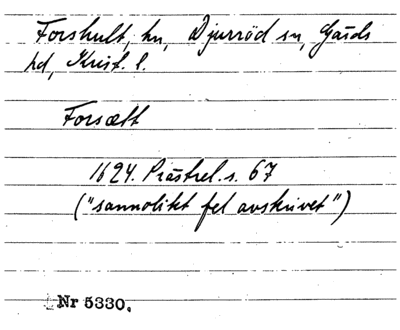 Forshult, hn, Djurröd sn, Gärds
hd, Krist. l.
Forsælt
1624. Prästrel. s. 67
("sannolikt fel avskrivet")
Nr 5330.